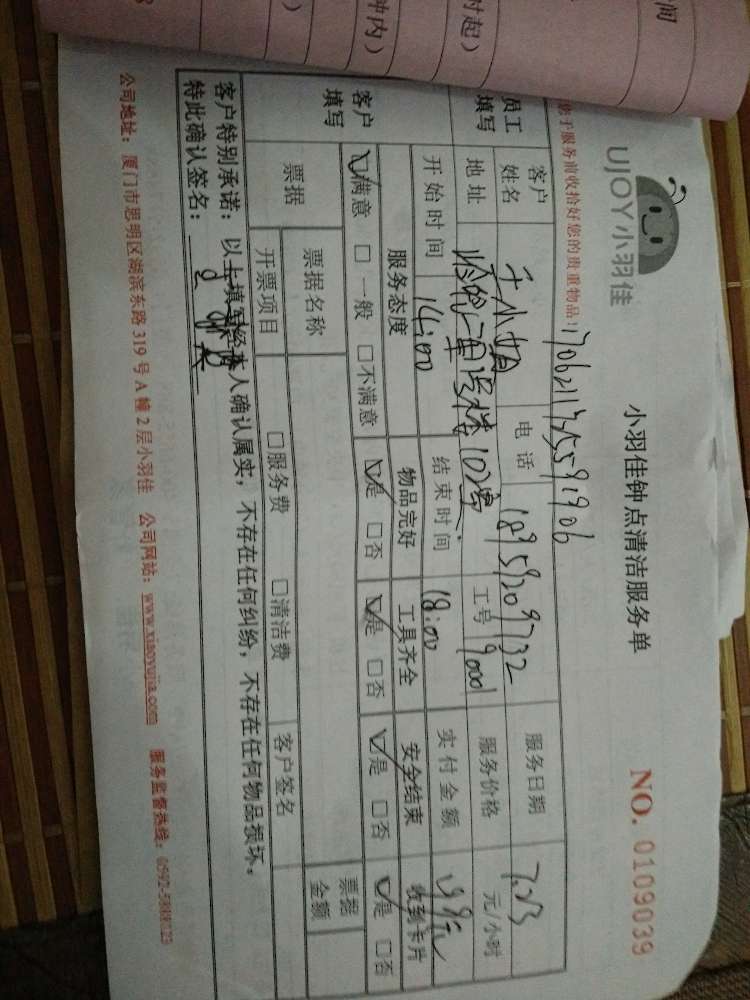 间
时起）
钟内）
UJOY小羽佳
小羽佳钟点清洁服务单
NO. 0109039
于服务前收拾好您的贵重物品!
员工填写
客户姓名
小姐
电话 18959209732
服务日期 7.23
地址
102室
工号 9000
服务价格 元/小时
开始时间 14:00
结束时间 18:00
实付金额
客户填写
服务态度
物品完好
工具齐全
安全结束
收到卡片
☑满意 □一般 □不满意
☑是 □否
☑是 □否
☑是 □否
☑是 □否
票据
票据名称
票据金额
开票项目
□服务费 □清洁费
客户签名
客户特别承诺：以上填写经本人确认属实，不存在任何纠纷，不存在任何物品损坏。
特此确认签名：
公司地址：厦门市思明区湖滨东路 319 号 A 幢 2 层小羽佳 公司网站：www.xiaoyujia.com 服务监督热线：